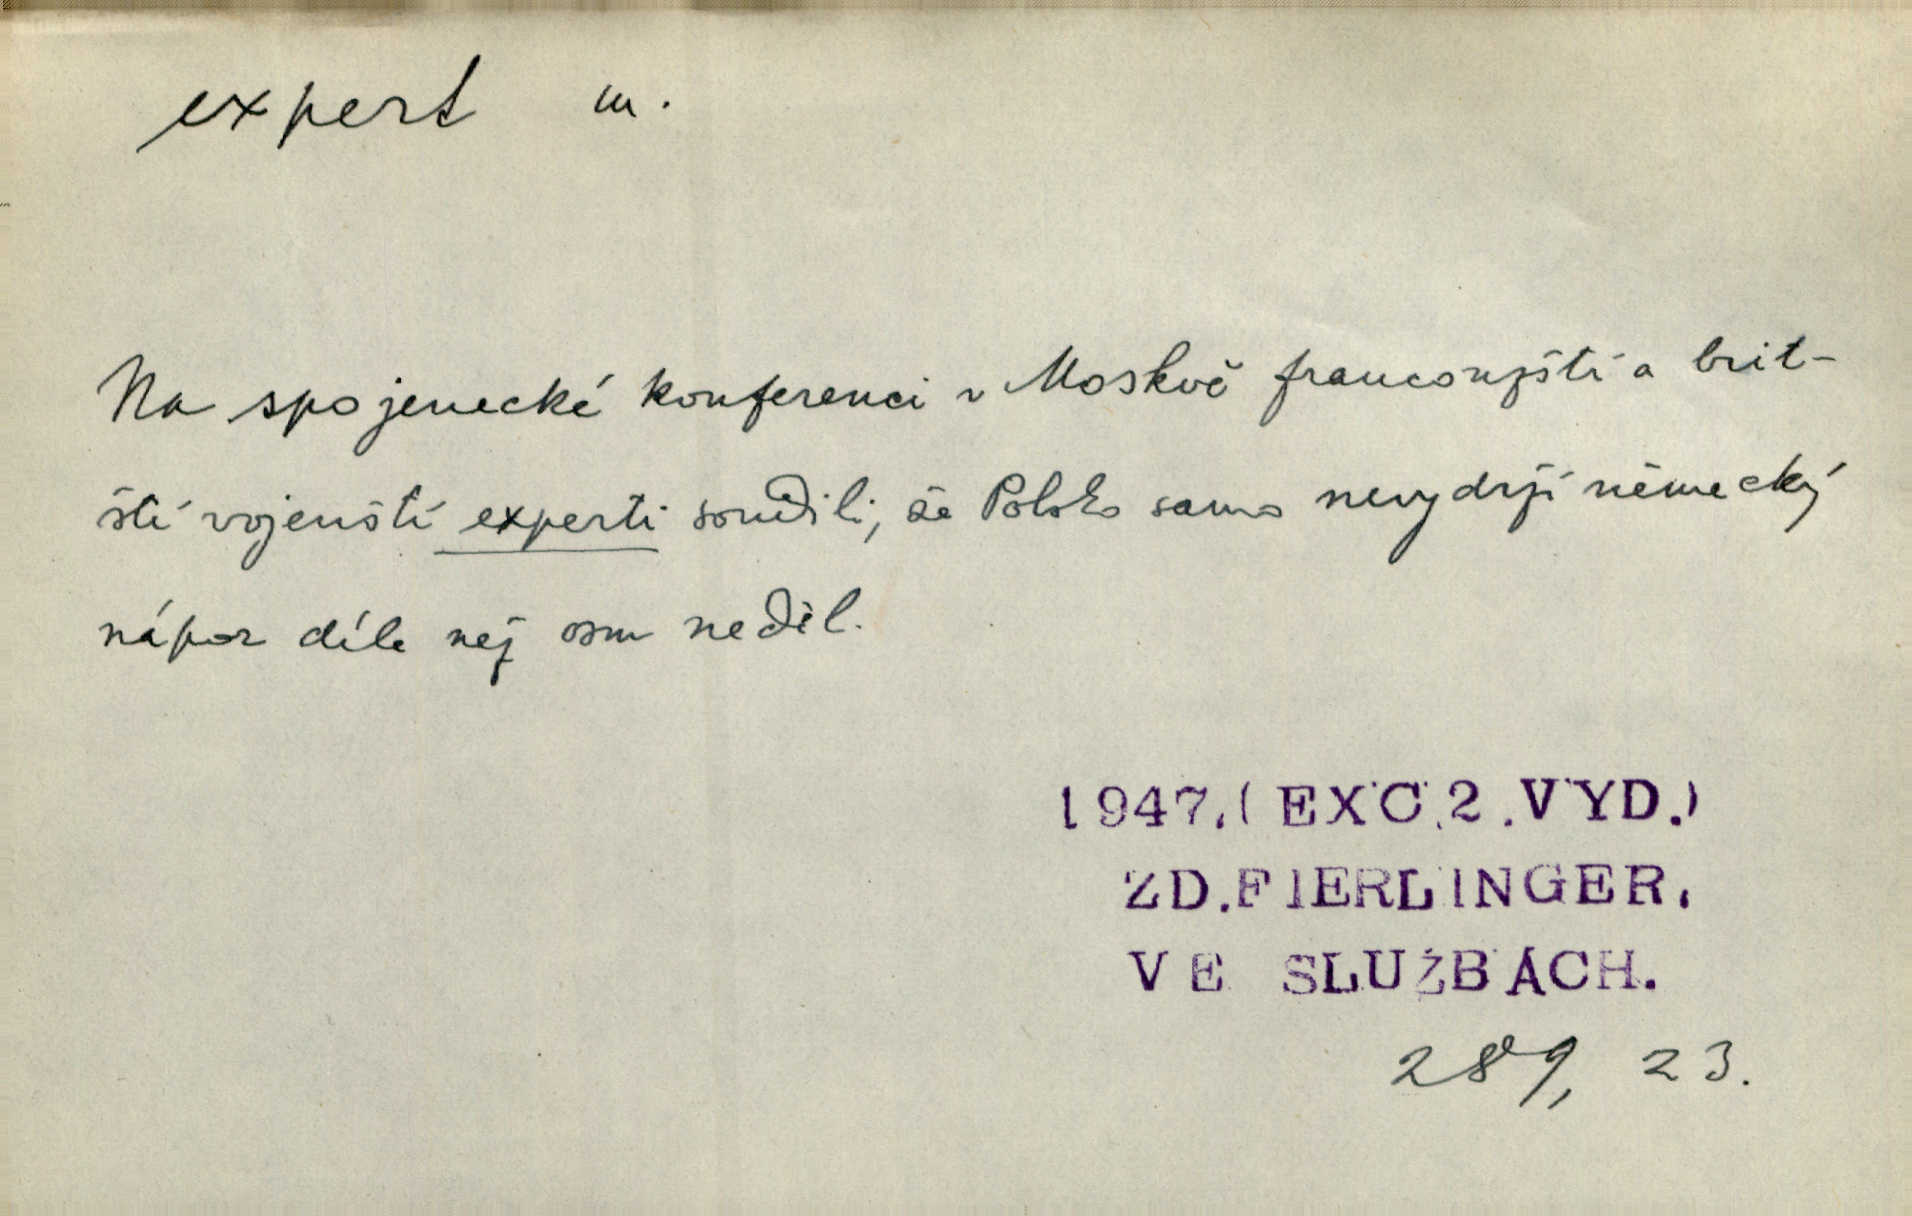 expert m.
Na spojenecké konferenci v Moskvě francouzští a brit-
ští vojenští experti soudili, že Polsko samo nevydrží německý
nápor déle než osm neděl.
1947.(EXC.2.VYD.)
ZD.FIERLINGER.
VE SLUŽBÁCH.
289, 23.